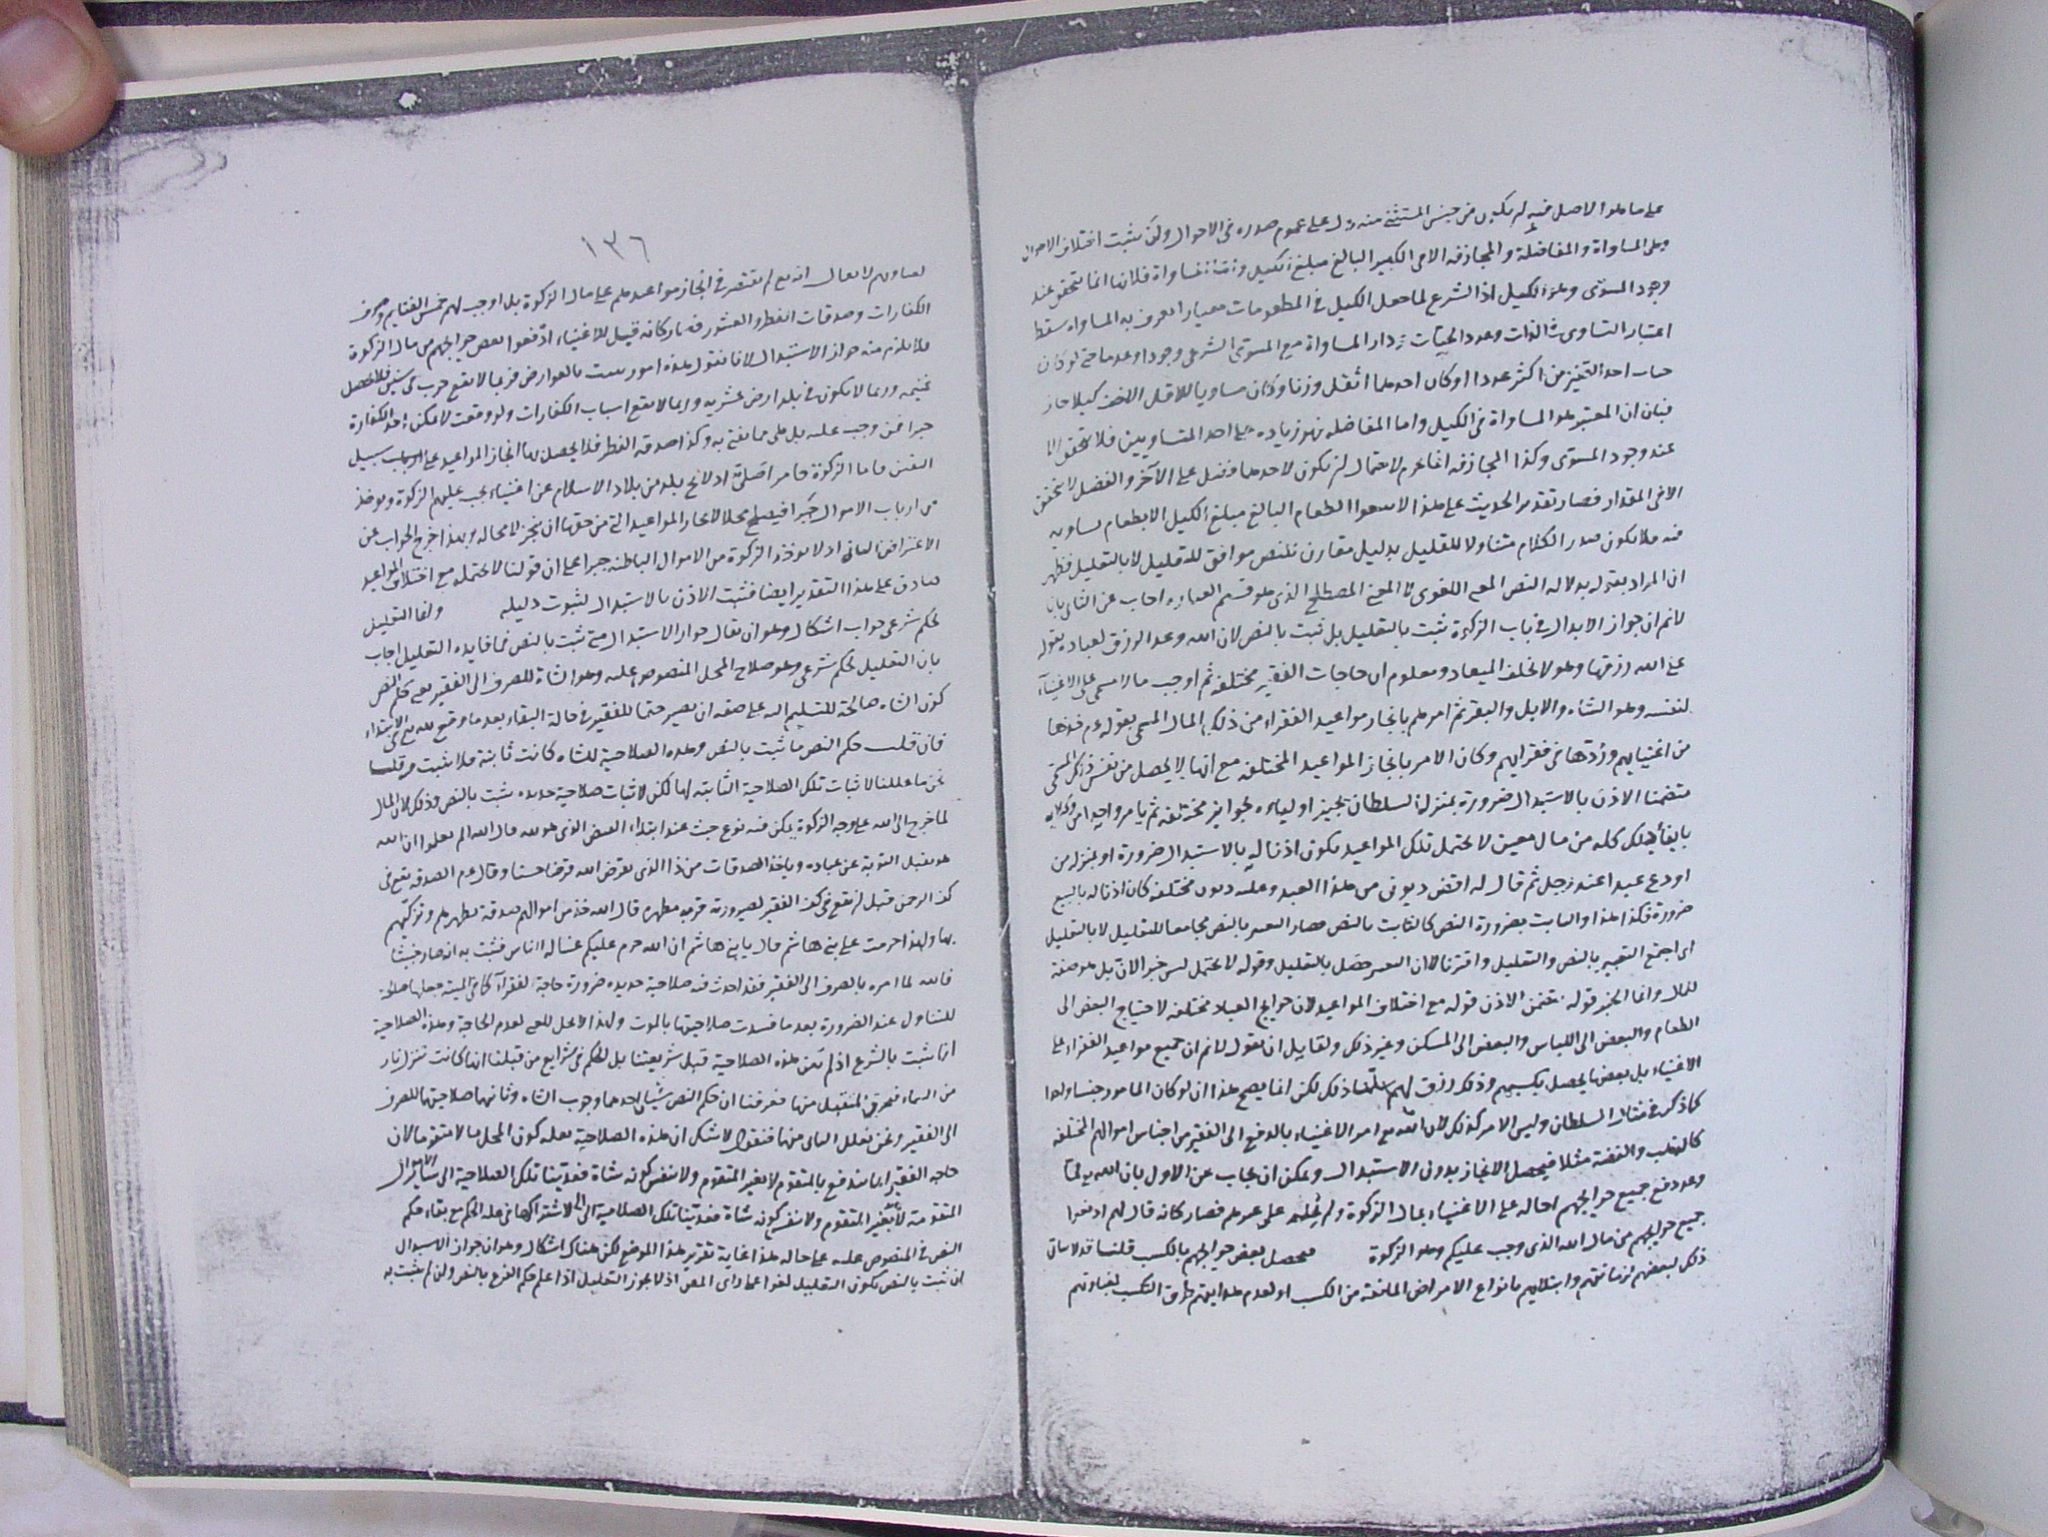 على ما هو الاصل فيه لم يكون من جنس المستثنى منه دل على عموم صدره في الاحوال ولن يثبت اختلاف الاحوال
وهى المساواة والمفاضلة والمجازفة الا في الكثير البالغ مبلغ الكيل اما المساواة فلانها انما تتحقق عند
وجود المسوى وهو الكيل اذ الشرع لما جعل الكيل في المطعومات معيارا يعرف به المساواة سقط
اعتبار التساوى في الذات وعدد الحبات ودار المساواة مع المسوى الشرعى وجودا وعدما حتى لو كان
حبات احد القفيزين اكثر عددا او كان احدهما اثقل وزنا وكان مساويا للاقل الاخف كيلا جاز
فبان ان المعتبر هو المساواة في الكيل واما المفاضلة فهو زياده على احد المتساويين فلا تتحقق الا
عند وجود المسوى وكذا المجازفه انما حرم لاحتمال ان يكون لاحدهما فضل على الآخر والفضل لا يتحقق
الا في المقدار فصار تقدير الحديث على هذا لا تبيعوا الطعام البالغ مبلغ الكيل الا بطعام يساويه
فيه فلا يكون صدر الكلام متناولا للقليل بدليل مقارن للنص موافق للتعليل لا بالتعليل فظهر
ان المراد بقوله بدلاله النص المعنى اللغوى لا المعنى المصطلح الذى هو قسيم العباره اجاب عن الثانى بان
لانم ان جواز الابدال في باب الزكوة ثبت بالتعليل بل ثبت بالنص لان الله وعد الرزق لعباده بقوله
على الله رزقها وهو لا يخلف الميعاد ومعلوم ان حاجات الفقير مختلفة ثم اوجب مالا مسمى على الاغنياء
لنفسه وهو الشاة والابل والبقر ثم امرهم بانجاز مواعيد الفقراء من ذلك المال المسمى بقوله ءم خذها
من اغنيايهم وردها في فقرايهم وكان الامر بانجاز المواعيد المختلفه مع انها لا يحصل من نفس ذلك المسمى
متضمنا الاذن بالاستبدال ضرورة بمنزلة السلطان يجيز اولياءه بجوايز مختلفه ثم يامر واحدا من وكلايه
بايفاء ذلك كله من مال معين لا يحتمل تلك المواعيد يكون اذنا له بالاستبدال ضرورة او بمنزله من
اودع عبدا عند رجل ثم قال له اقض ديونى من هذا العبد وعليه ديون مختلفه كان اذنا له بالبيع
ضرورة فكذا هذا والثابت بضرورة النص كالثابت بالنص فصار التغيير بالنص مجامعا للتعليل لا بالتعليل
اى اجتمع التغيير بالنص والتعليل واقترنا لا ان التغيير حصل بالتعليل وقوله لا يحتمل ليس خبر الان بل هو صفة
للمال وانما الخبر قوله يتضمن الاذن قوله مع اختلاف المواعيد لان حوايج العباد مختلفه لاحتياج البعض الى
الطعام والبعض الى اللباس والبعض الى المسكن وغير ذلك ولقايل ان يقول لانم ان جميع مواعيد الفقراء على
الاغنياء بل بعضها يحصل بكسبهم وذلك رزق لهم سلمنا ذلك لكن انما يصح هذا ان لو كان المامور جنسا واحدا
كما ذكر في مثال السلطان وليس الامر كذلك لان الله تع امر الاغنياء بالدفع الى الفقير من اجناس اموالهم المختلفه
كالذهب والفضة مثلا فيحصل الانجاز بدون الاستبدال ويمكن ان يجاب عن الاول بان الله تع لما
وعد دفع جميع حوايجهم احاله على الاغنياء بمال الزكوة ولم يحلهم على غيرهم فصار كانه قال لهم ادفعوا
جميع حوايجهم من مال الله الذى وجب عليكم وهو الزكوة فيحصل بعض حوايجهم بالكسب قلنا قد لا يتاتى
ذلك لبعضهم لزمانتهم وابتلايهم بانواع الامراض المانعة من الكسب او لعدم هدايتهم طرق الكسب لغباوتهم
١٣٦
لا يقال انه تع لم يقتصر في انجاز مواعيدهم على مال الزكوة بل اوجب لهم خمس الغنايم وصرف
الكفارات وصدقات الفطر والعشور فصار كانه قيل للاغنياء ادفعوا بعض حوايجهم من مال الزكوة
فلا يلزم منه جواز الاستبدال لانا نقول هذه امور ليست بالعوارض فربما لا يقع حرب في سنين فلا تحصل
غنيمه وربما لا يكون في بلد ارض عشريه وربما لا يقع اسباب الكفارات ولو وقعت لا يمكن اخذ الكفارة
جبرا ممن وجب عليه بل هى مما يفتى به وكذا صدقه الفطر فلا يحصل بها انجاز المواعيد على سبيل
اليقين واما الزكوة فامر اصلى اذ لا يخ بلد من بلاد الاسلام عن اغنياء يجب عليهم الزكوة ويوخذ
من ارباب الاموال جبرا فيصلح محلا لانجاز المواعيد التى من حقها ان ينجز لا محاله وبهذا خرج الجواب عن
الاعتراض الثانى اذ لا يوخذ الزكوة من الاموال الباطنه جبرا على ان قولنا لا يحتمله مع اختلاف المواعيد
صادق على هذا التقدير ايضا فثبت الاذن بالاستبدال لثبوت دليله وانما التعليل
لحكم شرعى جواب اشكال وهو ان يقال جواز الاستبدال متى ثبت بالنص فما فايده التعليل اجاب
بان التعليل لحكم شرعى وهو صلاح المحل المنصوص عليه وهو الشاة للصرف الى الفقير يعنى حكم النص
كون الشاه صالحة للتسليم اليه على صفه ان يصير حقا للفقير في حالة البقاء بعد ما وقع لله تع في الابتداء
فان قلت حكم النص ما ثبت بالنص وهذه الصلاحية للشاه كانت ثابتة فلا يثبت به قلنا
نحن ما عللنا لاثبات تلك الصلاحية الثابته لها لكن لاثبات صلاحية جديده يثبت بالنص وذلك لان المال
لما خرج الى الله على وجه الزكوة يمكن فيه نوع خبث عند ابتداء القبض الذى هو لله قال الله الم يعلموا ان الله
هو يقبل التوبة عن عباده وياخذ الصدقات من ذا الذى يقرض الله قرضا حسنا وقال ءم الصدقه يقع في
كف الرحمن قبل ان تقع في كف الفقير لصيرورته قربة مطهره قال الله خذ من اموالهم صدقة تطهرهم وتزكيهم
بها ولهذا حرمت على بنى هاشم قال يا بنى هاشم ان الله حرم عليكم غساله الناس فثبت به انه صار خبيثا
فالله لما امره بالصرف الى الفقير فقد احدث فيه صلاحية جديده ضرورة حاجة الفقراء كما في الميتة جعلها صالحة
للتناول عند الضرورة بعد ما فسدت صلاحيتها بالموت ولهذا لا يحل للغنى لعدم الحاجة وهذه الصلاحية
انما ثبت بالشرع اذ لم تكن هذه الصلاحية قبل شريعتنا بل الحكم في شرايع من قبلنا انها كانت تنزل نار
من السماء فيحرق المتقبل منها فعرفنا ان حكم النص شيئان احدهما وجوب الشاه وثانيهما صلاحيتها للصرف
الى الفقير ونحن نعلل الثانى منهما فنقول لا شك ان هذه الصلاحية بعله كون المحل مالا متقوما لان
حاجه الفقير انما يندفع بالمتقوم لا بغير المتقوم ولا بنفس كونه شاة فعدينا تلك الصلاحية الى ساير الاموال
المتقومة لا بغير المتقوم ولا بنفس كونه شاة فعدينا تلك الصلاحية الى لاشتراكها في عله الحكم مع بقاء حكم
النص في المنصوص عليه على حاله هذا غاية تقرير هذا الموضع لكن هناك اشكال وهو ان جواز الاستبدال
ان ثبت بالنص يكون التعليل لغوا على راى البعض اذ لا يجوز التعليل اذا علم حكم الفرع بالنص ولن لم يثبت به